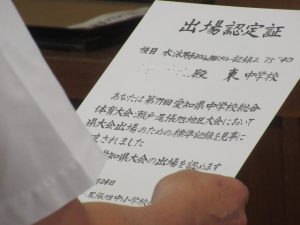 出場認定証
種目 水泳 記録2 15 40
殿 東中学校
あなたは第71回愛知県中学校総合
体育大会瀬戸尾張旭地区大会において
県大会出場のための標準記録を見事に
されました
知県大会の出場を認めます
月24日
張旭中小学校